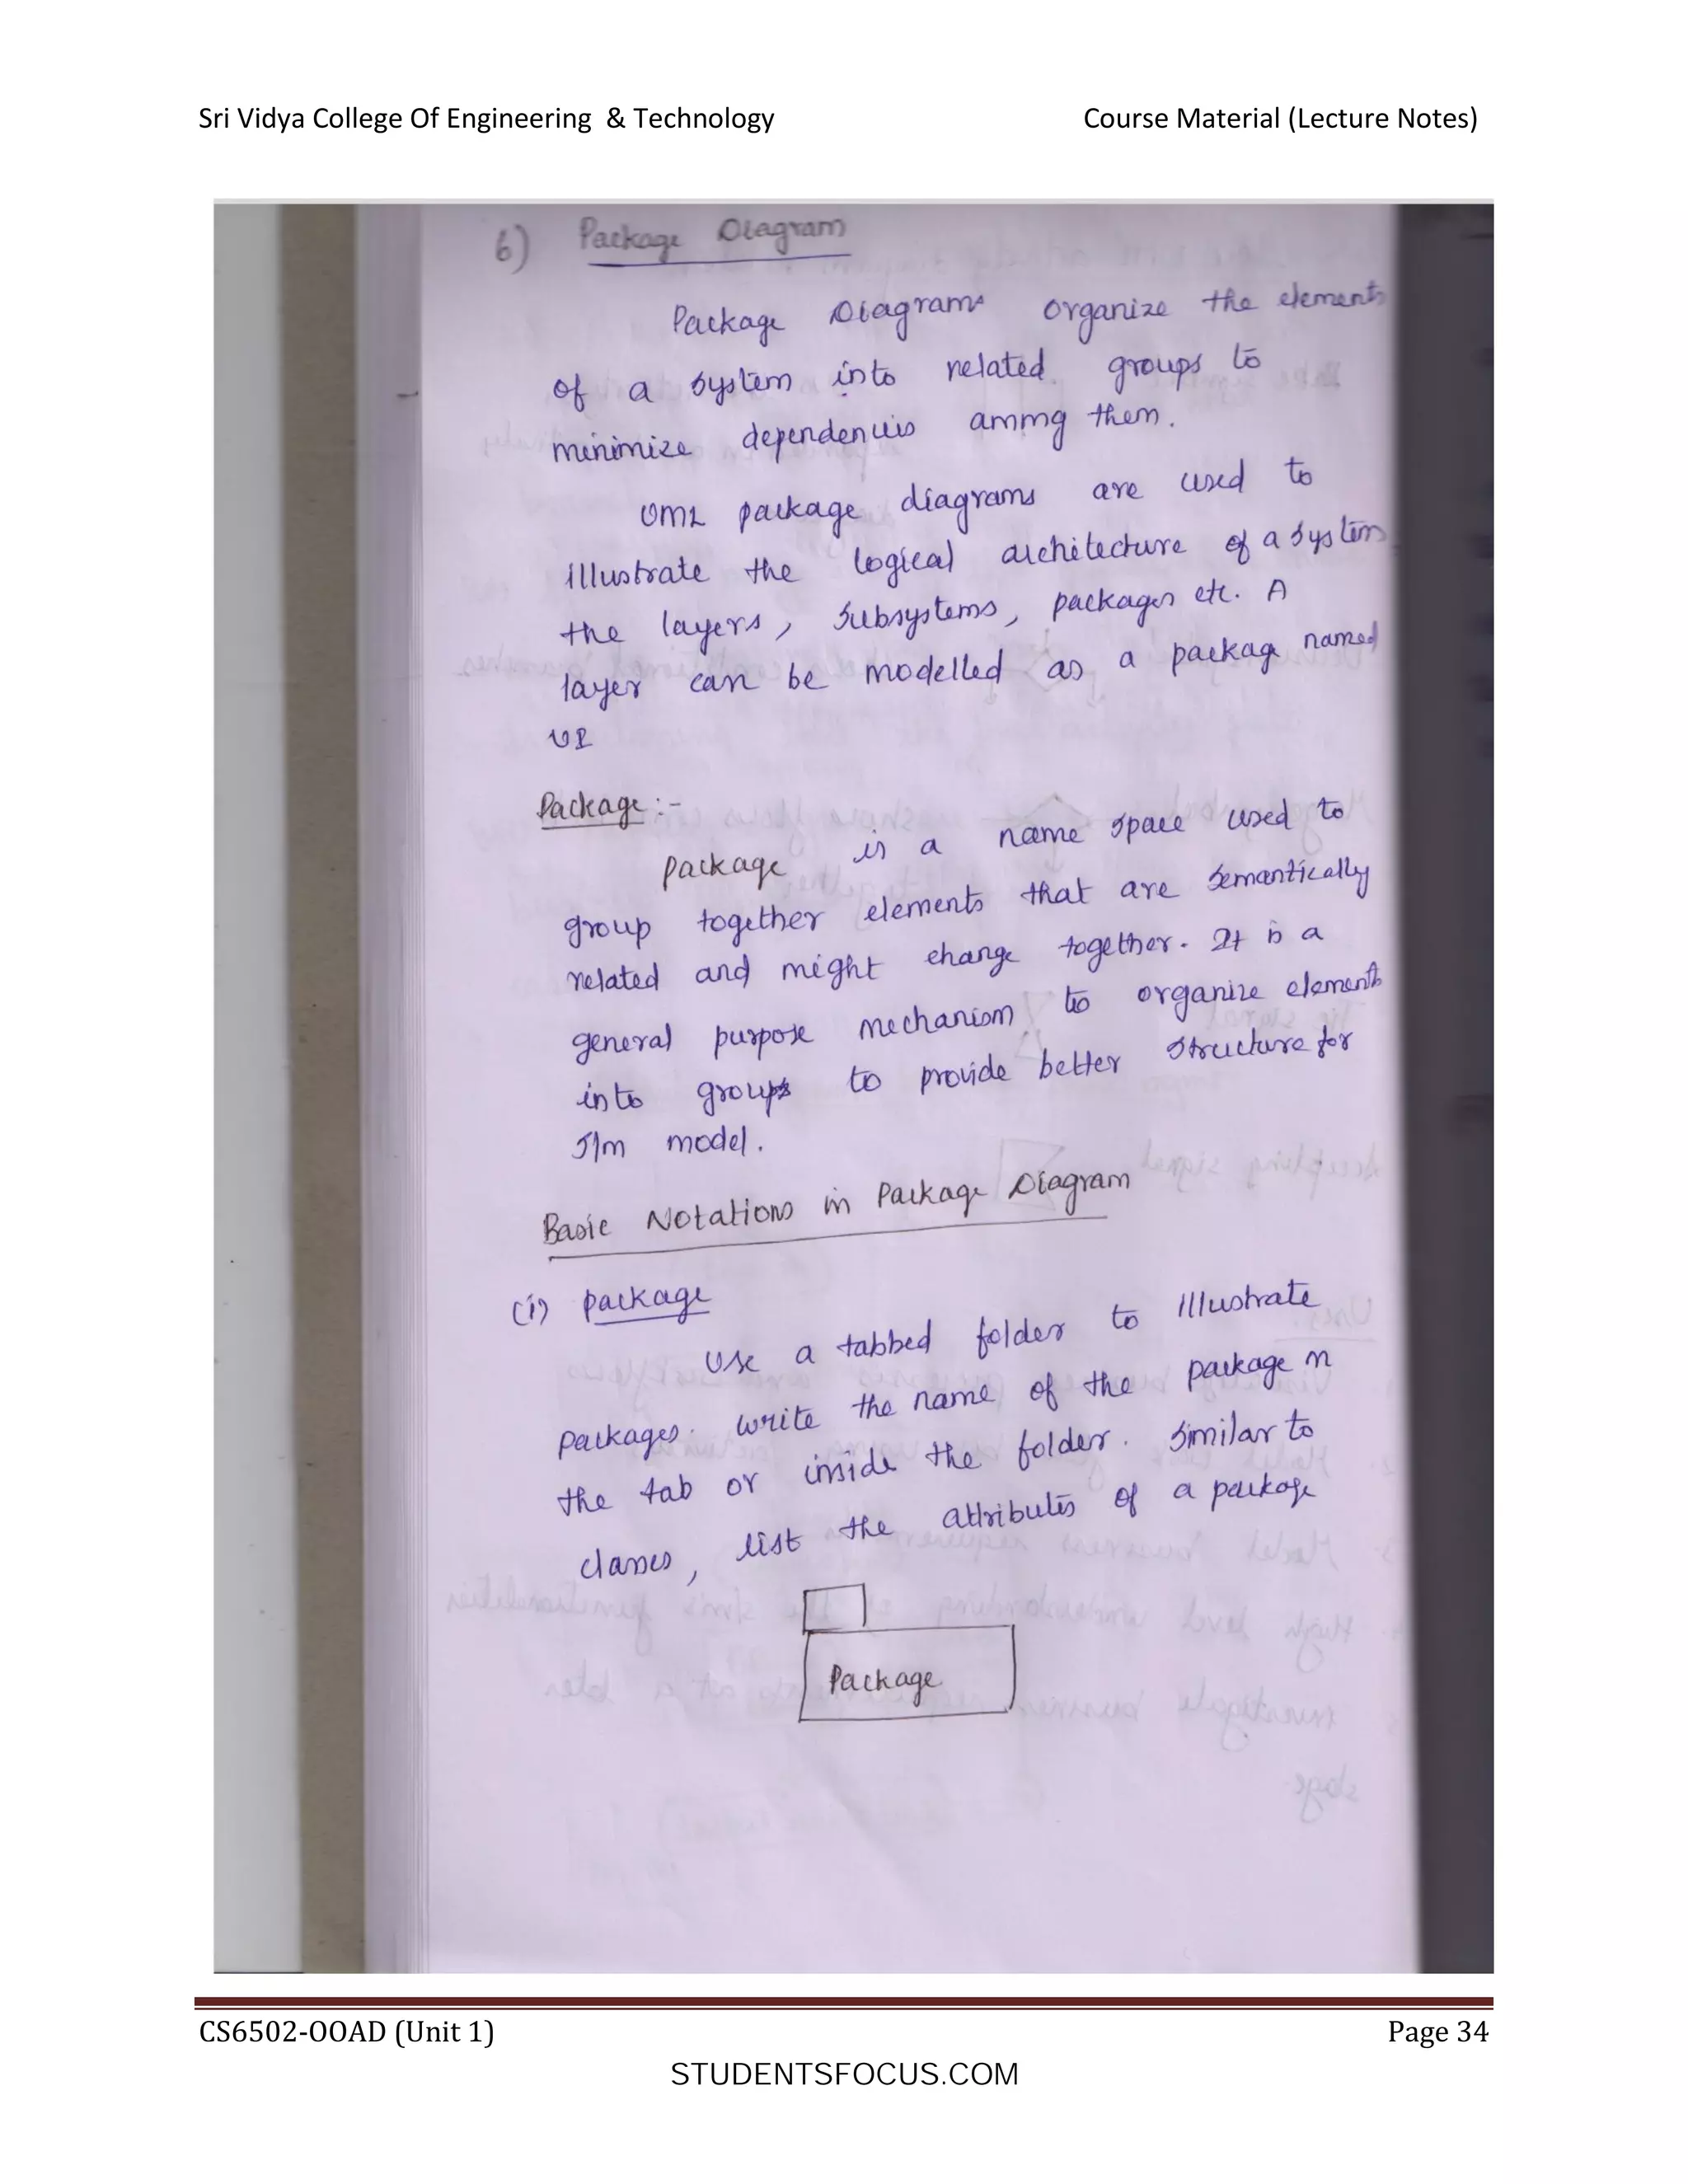 Sri Vidya College Of Engineering & Technology Course Material (Lecture Notes)
6) Package Diagram
Package Diagrams organize the elements
of a system into related groups to
minimize dependencies among them.
UML package diagrams are used to
illustrate the logical architecture of a system
the layers, subsystems, packages etc. A
layer can be modelled as a package named
UI
Package:-
Package is a name space used to
group together elements that are semantically
related and might change together. It is a
general purpose mechanism to organize elements
into groups to provide better structure for
S/m model.
Basic Notations in Package Diagram
(i) package
Use a tabbed folder to illustrate
packages. write the name of the package on
the tab or inside the folder. Similar to
classes, list the attributes of a package
Package
CS6502-OOAD (Unit 1) Page 34
STUDENTSFOCUS.COM